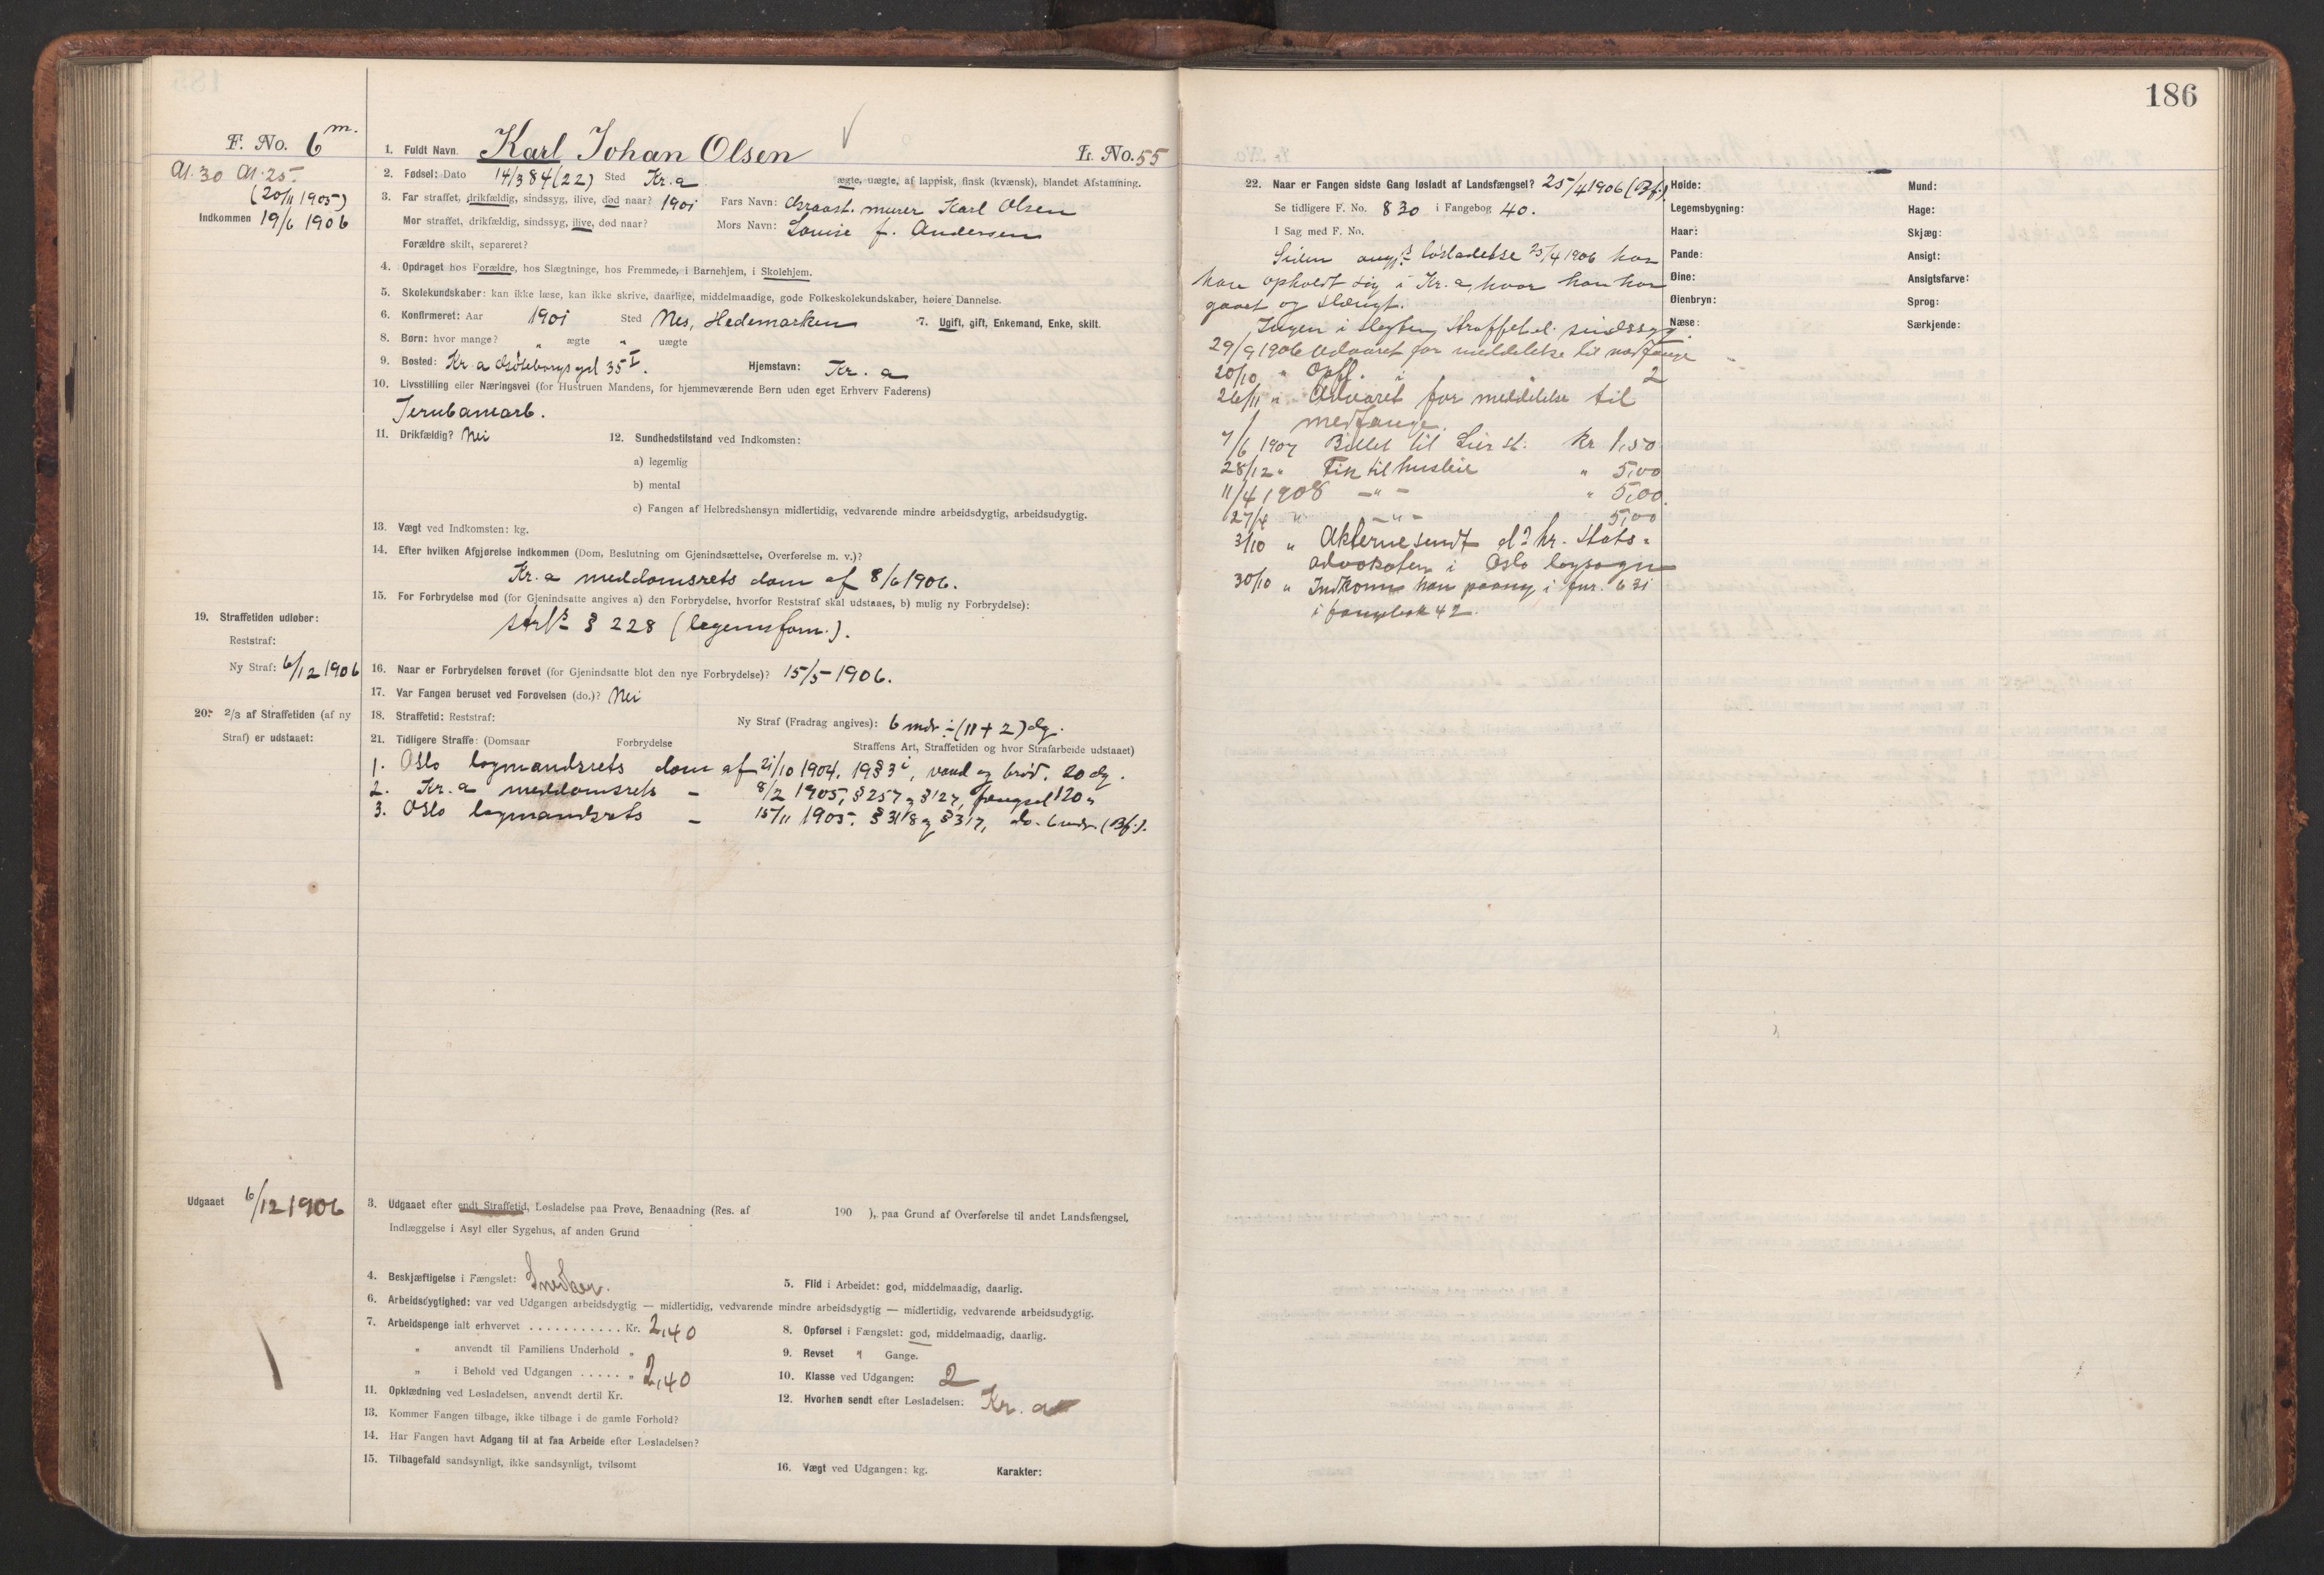 186
F. No. 6 m.
Al. 30 Al. 25.
(20/11 1905)
Indkommen 19/6 1906
1. Fuldt Navn. Karl Johan Olsen L. No. 55
2. Fødsel: Dato 14/3 84 (22) Sted Kr.a ægte, uægte, af lappisk, finsk (kvænsk), blandet Afstamning.
3. Far straffet, drikfældig, sindssyg, ilive, død naar? 1901 Fars Navn: Graast. murer Karl Olsen
Mor straffet, drikfældig, sindssyg, ilive, død naar? Mors Navn: Louise f. Andersen
Forældre skilt, separeret?
4. Opdraget hos Forældre, hos Slægtninge, hos Fremmede, i Barnehjem, i Skolehjem.
5. Skolekundskaber: kan ikke læse, kan ikke skrive, daarlige, middelmaadige, gode Folkeskolekundskaber, høiere Dannelse.
6. Konfirmeret: Aar 1901 Sted Nes, Hedemarken 7. Ugift, gift, Enkemand, Enke, skilt.
8. Børn: hvor mange? " ægte " uægte
9. Bosted: Kr.a Gøteborgsgd 35 I. Hjemstavn: Kr.a
10. Livsstilling eller Næringsvei (for Hustruen Mandens, for hjemmeværende Børn uden eget Erhverv Faderens)
Jernbanearb.
11. Drikfældig? Nei 12. Sundhedstilstand ved Indkomsten:
a) legemlig
b) mental
c) Fangen af Helbredshensyn midlertidig, vedvarende mindre arbeidsdygtig, arbeidsudygtig.
13. Vægt ved Indkomsten: kg.
14. Efter hvilken Afgjørelse indkommen (Dom, Beslutning om Gjenindsættelse, Overførelse m. v.)?
Kr.a meddomsrets dom af 8/6 1906.
15. For Forbrydelse mod (for Gjenindsatte angives a) den Forbrydelse, hvorfor Reststraf skal udstaaes, b) mulig ny Forbrydelse):
§ 228 (legemsforn.).
19. Straffetiden udløber:
Reststraf:
Ny Straf: 6/12 1906
16. Naar er Forbrydelsen forøvet (for Gjenindsatte blot den nye Forbrydelse)? 15/5 1906.
17. Var Fangen beruset ved Forøvelsen (do.)? Nei
20. 2/3 af Straffetiden (af ny
Straf) er udstaaet:
18. Straffetid: Reststraf: Ny Straf (Fradrag angives): 6 mdr ÷ (11 + 2) dg.
21. Tidligere Straffe: (Domsaar Forbrydelse Straffens Art, Straffetiden og hvor Strafarbeide udstaaet)
1. Oslo lagmandsrets dom af 21/10 1904, 19 § 3 i, vand og brød. 20 dg.
2. Kr.a meddomsrets – 8/2 1905, § 257, § 127, fængsel 120 "
3. Oslo lagmandsrets – 15/11 1905. § 318 § 317, do. 6 mdr (Bf.).
Udgaaet 6/12 1906
3. Udgaaet efter endt Straffetid, Løsladelse paa Prøve, Benaadning (Res. af 190 ), paa Grund af Overførelse til andet Landsfængsel,
Indlæggelse i Asyl eller Sygehus, af anden Grund
4. Beskjæftigelse i Fængslet: Snedker. 5. Flid i Arbeidet: god, middelmaadig, daarlig.
6. Arbeidsdygtighed: var ved Udgangen arbeidsdygtig — midlertidig, vedvarende mindre arbeidsdygtig — midlertidig, vedvarende arbeidsudygtig.
7. Arbeidspenge ialt erhvervet . . . . . . . . . . . Kr. 2,40 8. Opførsel i Fængslet: god, middelmaadig, daarlig.
" anvendt til Familiens Underhold " 9. Revset " Gange.
" i Behold ved Udgangen . . . . . " 2,40 10. Klasse ved Udgangen: 2
11. Opklædning ved Løsladelsen, anvendt dertil Kr. 12. Hvorhen sendt efter Løsladelsen: Kr.a
13. Kommer Fangen tilbage, ikke tilbage i de gamle Forhold?
14. Har Fangen havt Adgang til at faa Arbeide efter Løsladelsen?
15. Tilbagefald sandsynligt, ikke sandsynligt, tvilsomt 16. Vægt ved Udgangen: kg. Karakter:
22. Naar er Fangen sidste Gang løsladt af Landsfængsel? 25/4 1906 (Bf.)
Se tidligere F. No. 830 i Fangebog 40.
I Sag med F. No.
Siden løsladelse 25/4 1906 har
han opholdt sig i Kr.a, hvor han har
gaaet og slængt.
Ingen i slegten straffet el. sindssyg.
29/9 1906 Advaret for meddelelse til medfange
20/10 " Opfl. i 2
26/11 " Advaret for meddelelse til
medfange.
7/6 1907 Billet til Lier st. kr 1,50
28/12 " Fik til husleie " 5,00
11/4 1908 –"– " 5,00.
27/4 " –"– 5,00
3/10 " Akterne sendt hr. Stats=
advokaten i Oslo lagsogn
30/10 " Indkom han paany i fnr. 631
i fangebok 42.
Høide: Mund:
Legemsbygning: Hage:
Haar: Skjæg:
Pande: Ansigt:
Øine: Ansigtsfarve:
Øienbryn: Sprog:
Næse: Særkjende: